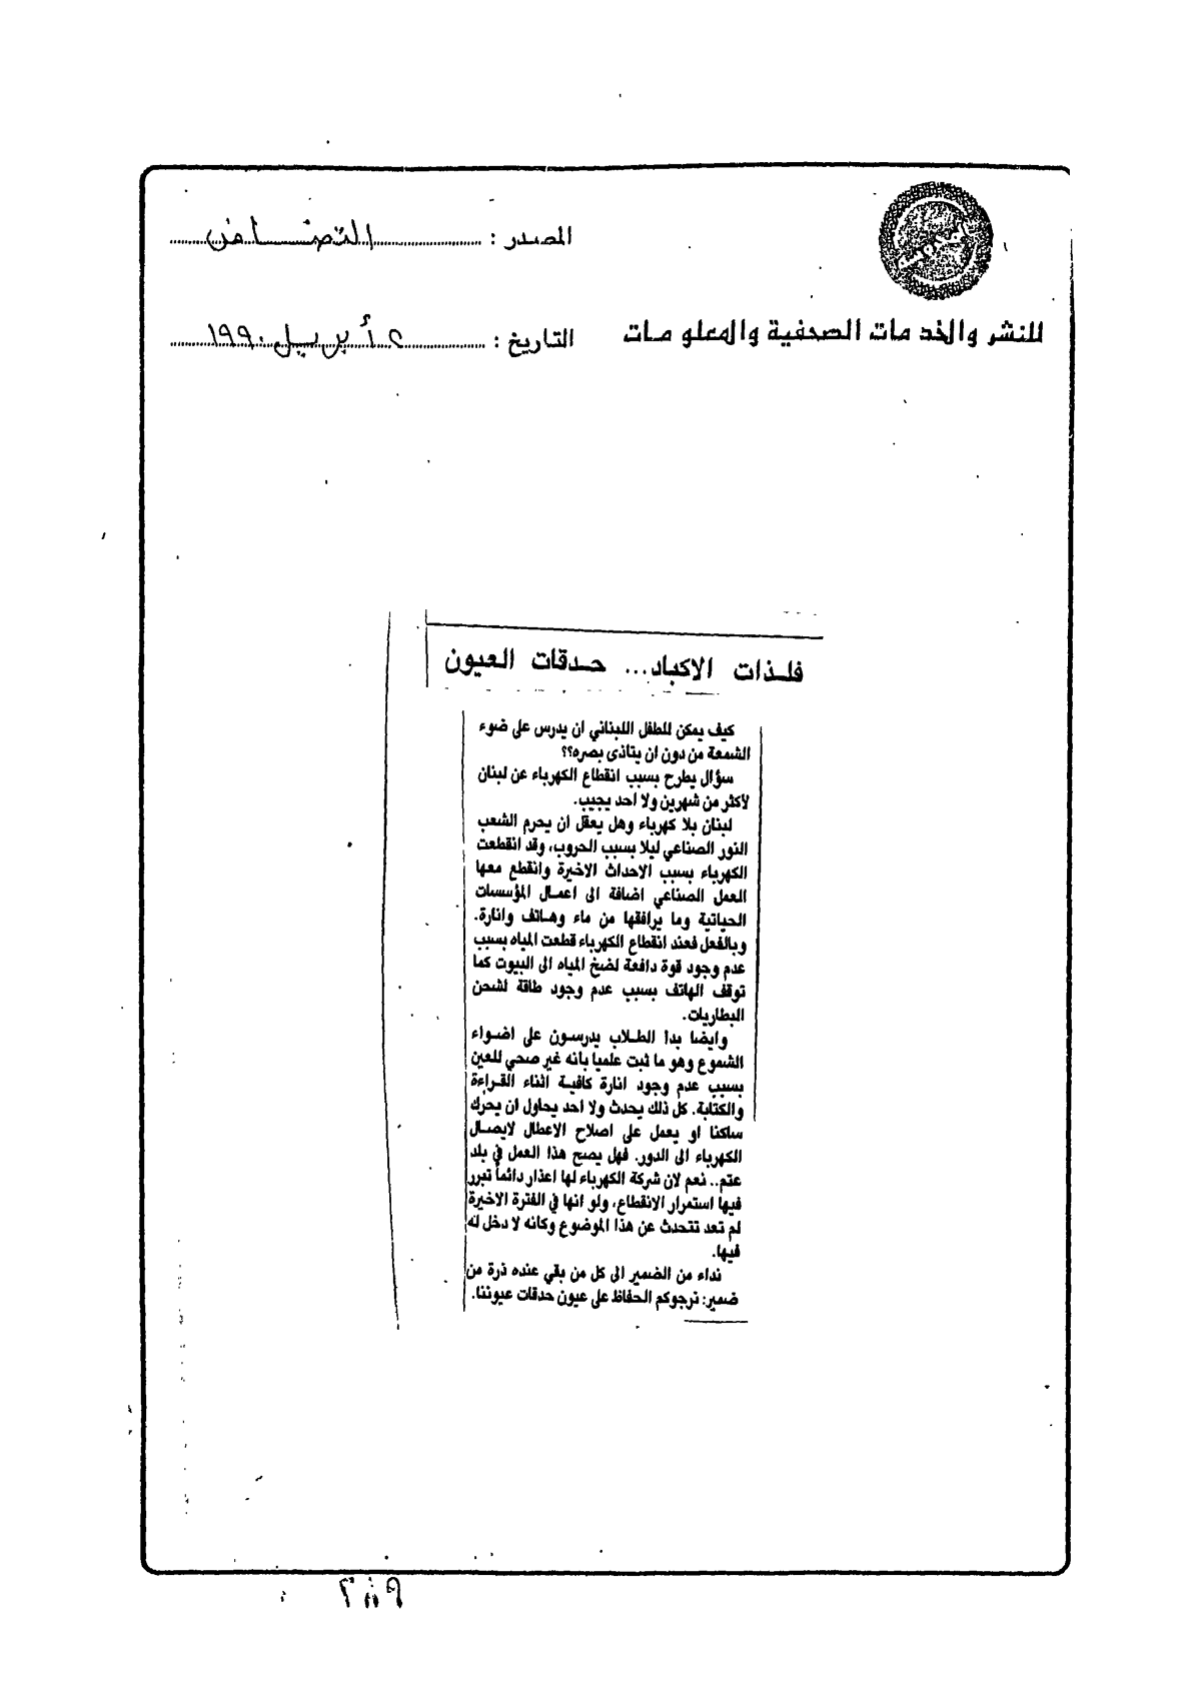 المصدر : التضامن
للنشر والخدمات الصحفية والمعلومات
التاريخ : ٢ أبريل ١٩٩٠
فلذات الاكباد... حدقات العيون
كيف يمكن للطفل اللبناني ان يدرس على ضوء
الشمعة من دون ان يتاذى بصره؟؟
سؤال يطرح بسبب انقطاع الكهرباء عن لبنان
لأكثر من شهرين ولا احد يجيب.
لبنان بلا كهرباء وهل يعقل ان يحرم الشعب
النور الصناعي ليلا بسبب الحروب، وقد انقطعت
الكهرباء بسبب الاحداث الاخيرة وانقطع معها
العمل الصناعي اضافة الى اعمال المؤسسات
الحياتية وما يرافقها من ماء وهاتف وانارة.
وبالفعل فعند انقطاع الكهرباء قطعت المياه بسبب
عدم وجود قوة دافعة لضخ المياه الى البيوت كما
توقف الهاتف بسبب عدم وجود طاقة لشحن
البطاريات.
وايضا بدأ الطلاب يدرسون على اضواء
الشموع وهو ما ثبت علميا بانه غير صحي للعين
بسبب عدم وجود انارة كافية اثناء القراءة
والكتابة. كل ذلك يحدث ولا احد يحاول ان يحرك
ساكنا او يعمل على اصلاح الاعطال لايصال
الكهرباء الى الدور. فهل يصح هذا العمل في بلد
عتم.. نعم لان شركة الكهرباء لها اعذار دائماً تبرر
فيها استمرار الانقطاع، ولو انها في الفترة الاخيرة
لم تعد تتحدث عن هذا الموضوع وكانه لا دخل له
فيها.
نداء من الضمير الى كل من بقي عنده ذرة من
ضمير: نرجوكم الحفاظ على عيون حدقات عيوننا.